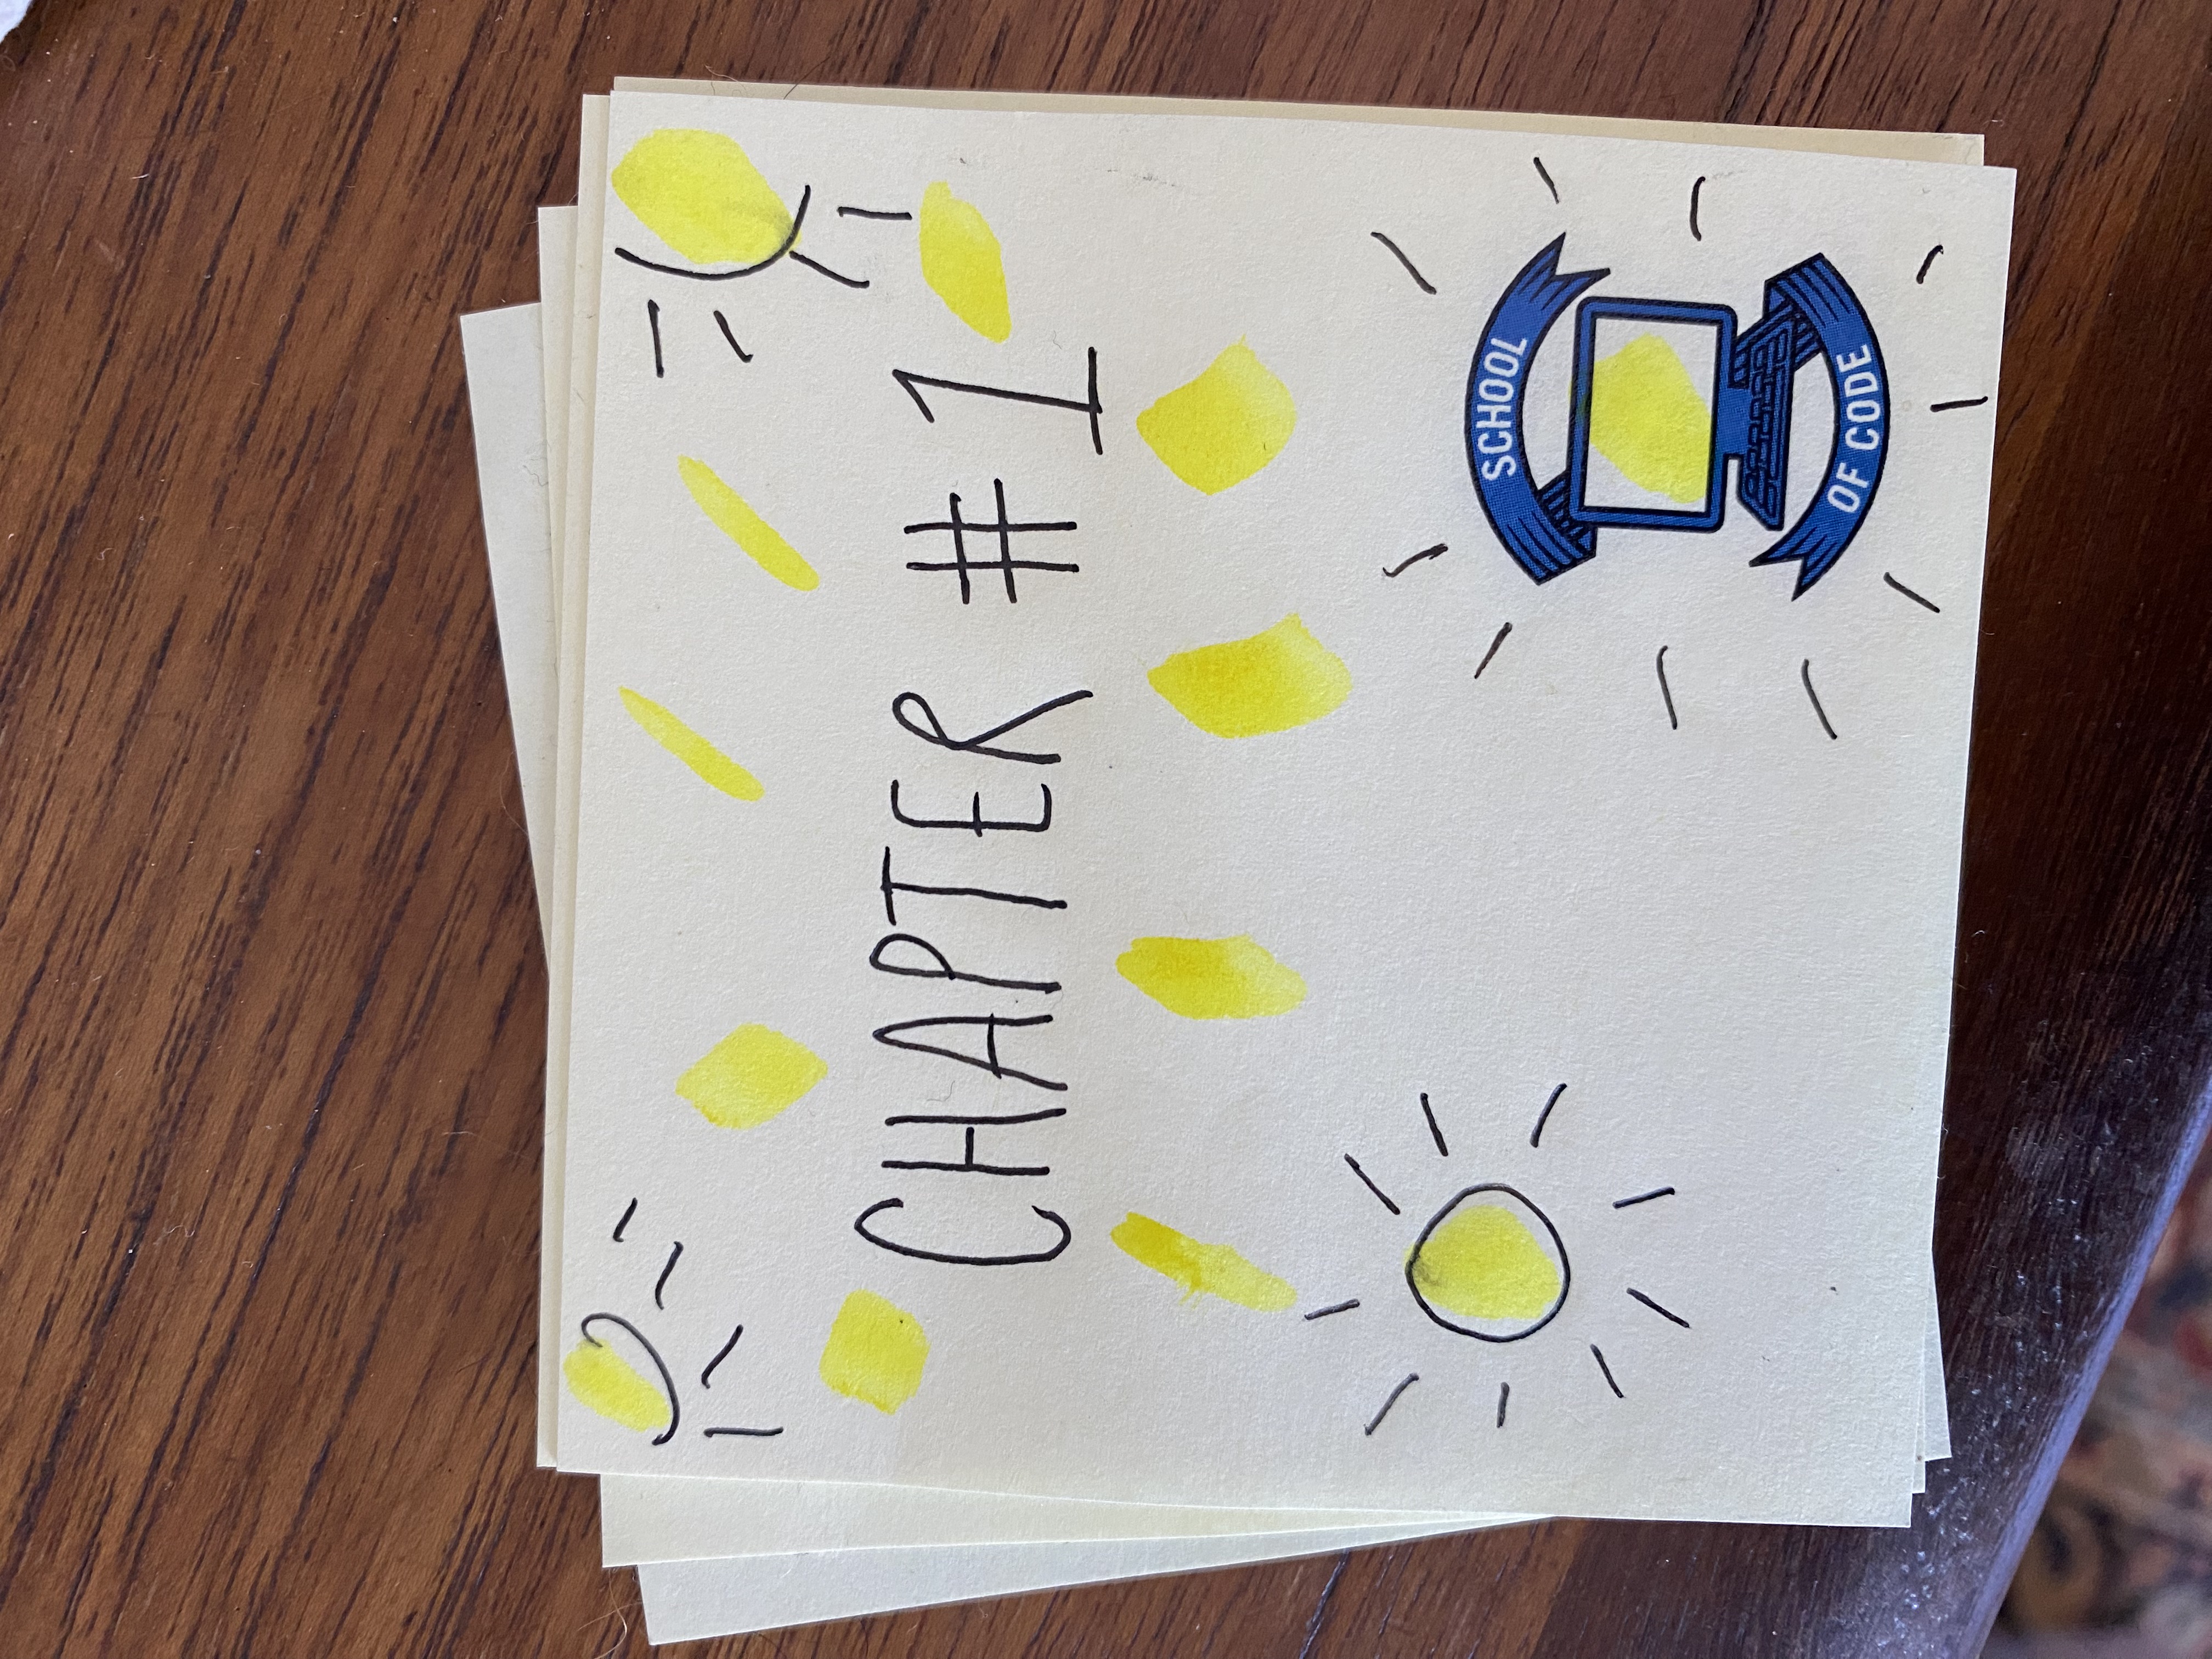 CHAPTER #1
SCHOOL
OF CODE